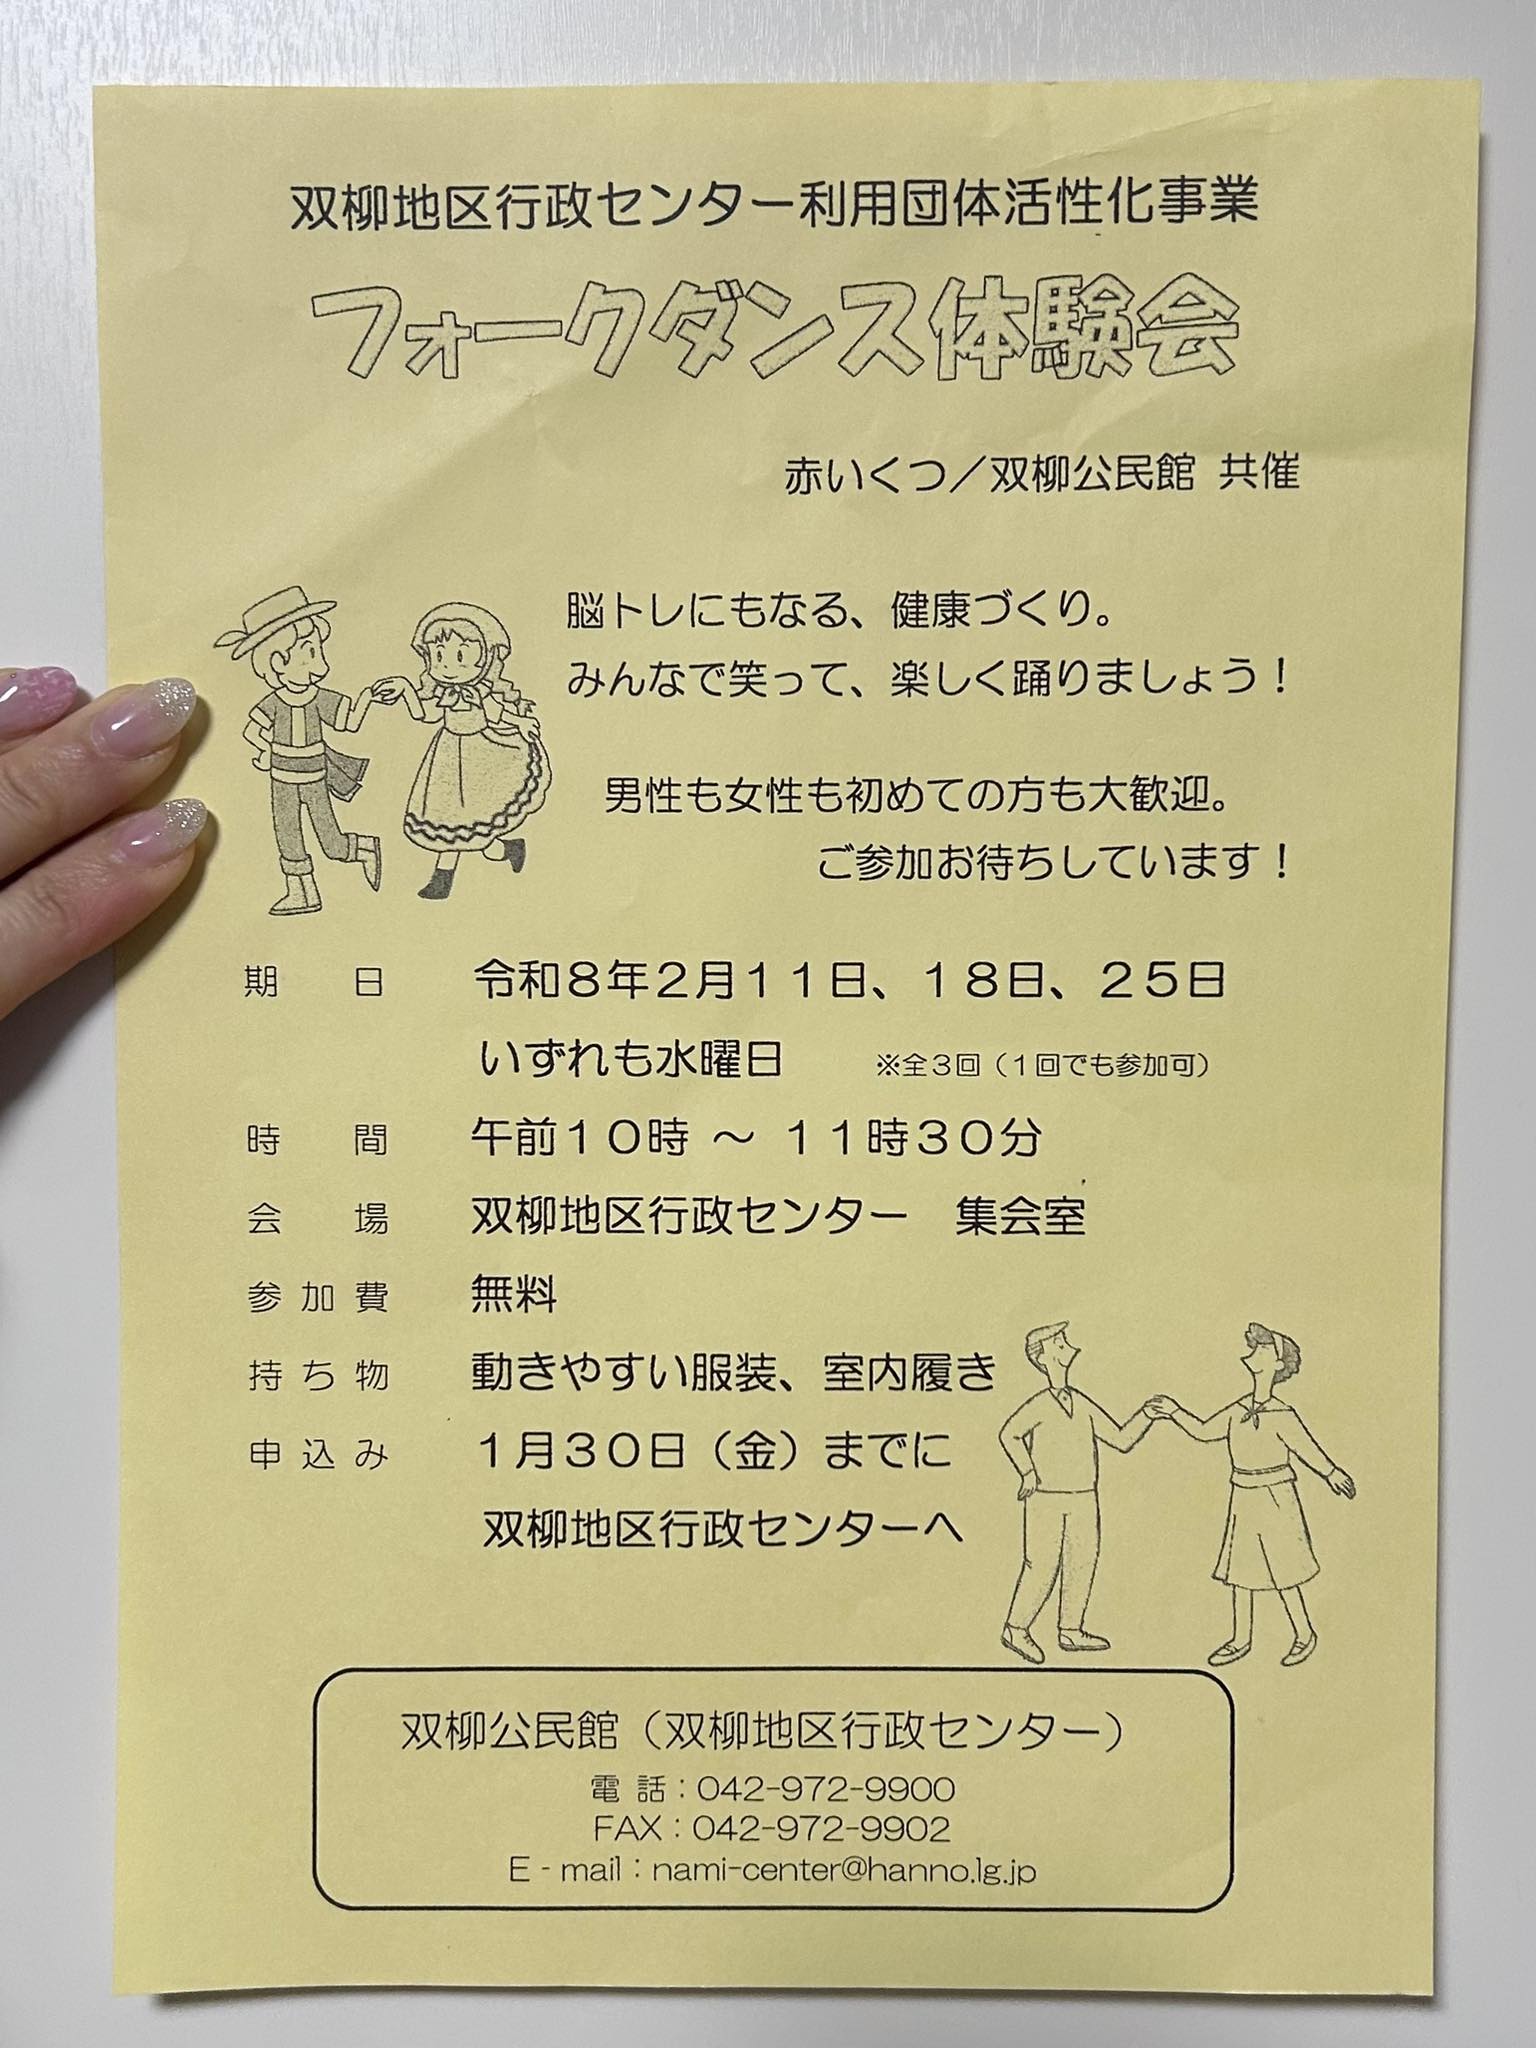 双柳地区行政センター利用団体活性化事業
フォークダンス体験会
赤いくつ／双柳公民館 共催
脳トレにもなる、健康づくり。
みんなで笑って、楽しく踊りましょう！
男性も女性も初めての方も大歓迎。
ご参加お待ちしています！
期日 令和８年２月１１日、１８日、２５日
いずれも水曜日 ※全３回（１回でも参加可）
時間 午前１０時 ～ １１時３０分
会場 双柳地区行政センター 集会室
参加費 無料
持ち物 動きやすい服装、室内履き
申込み １月３０日（金）までに
双柳地区行政センターへ
双柳公民館（双柳地区行政センター）
電話：042-972-9900
FAX：042-972-9902
E-mail：nami-center@hanno.lg.jp